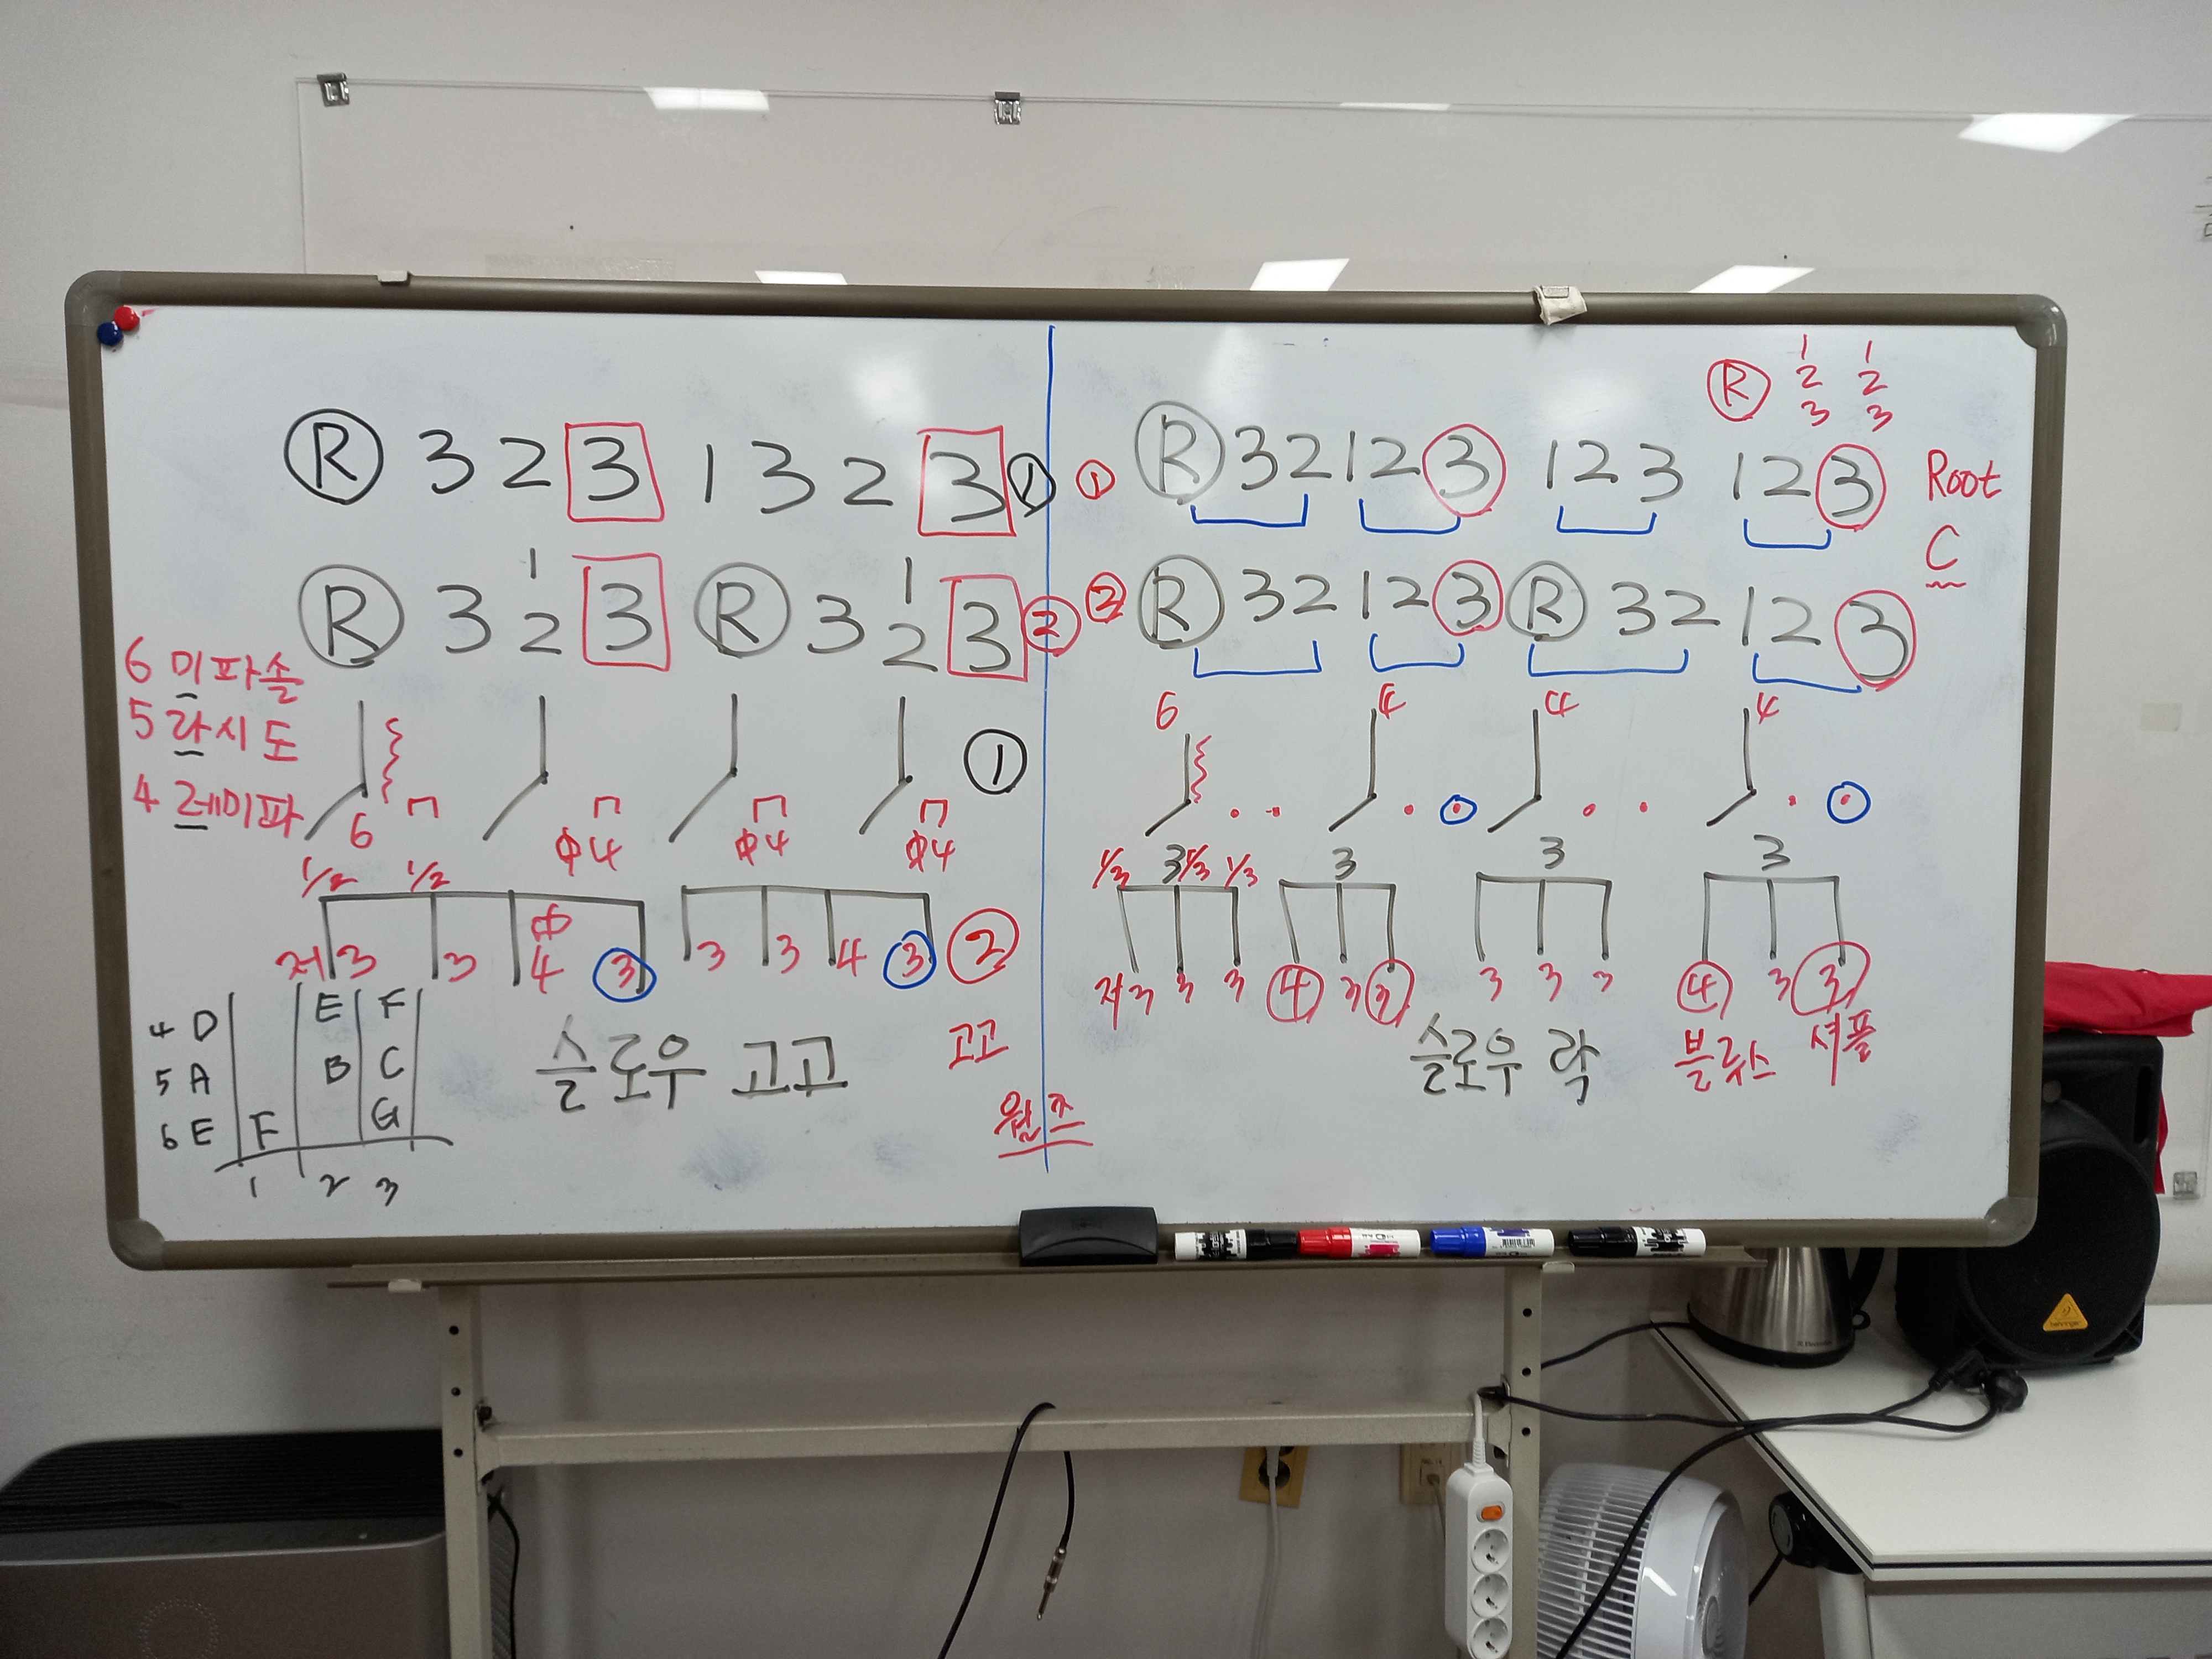 R 3 2 3 1 3 2 3 ①
R 3 1 2 3 R 3 1 2 3 ②
6 미파솔
5 라시도
4 레미파
6 ①
ф4 ф4 ф4
1/2 1/2
저 3 3 ф 4 3 3 3 4 3 ②
4 D E F
5 A B C
6 E F G
1 2 3
슬로우 고고
고고
왈츠
R 1 2 3 1 2 3
① R 3 2 1 2 3 1 2 3 1 2 3
Root
C
② R 3 2 1 2 3 R 3 2 1 2 3
6 4 4 4
1/3 3 1/3 1/3 3 3 3
저 3 3 3 4 3 3 3 3 3 4 3 3
슬로우 락
블루스
셔플
behringer